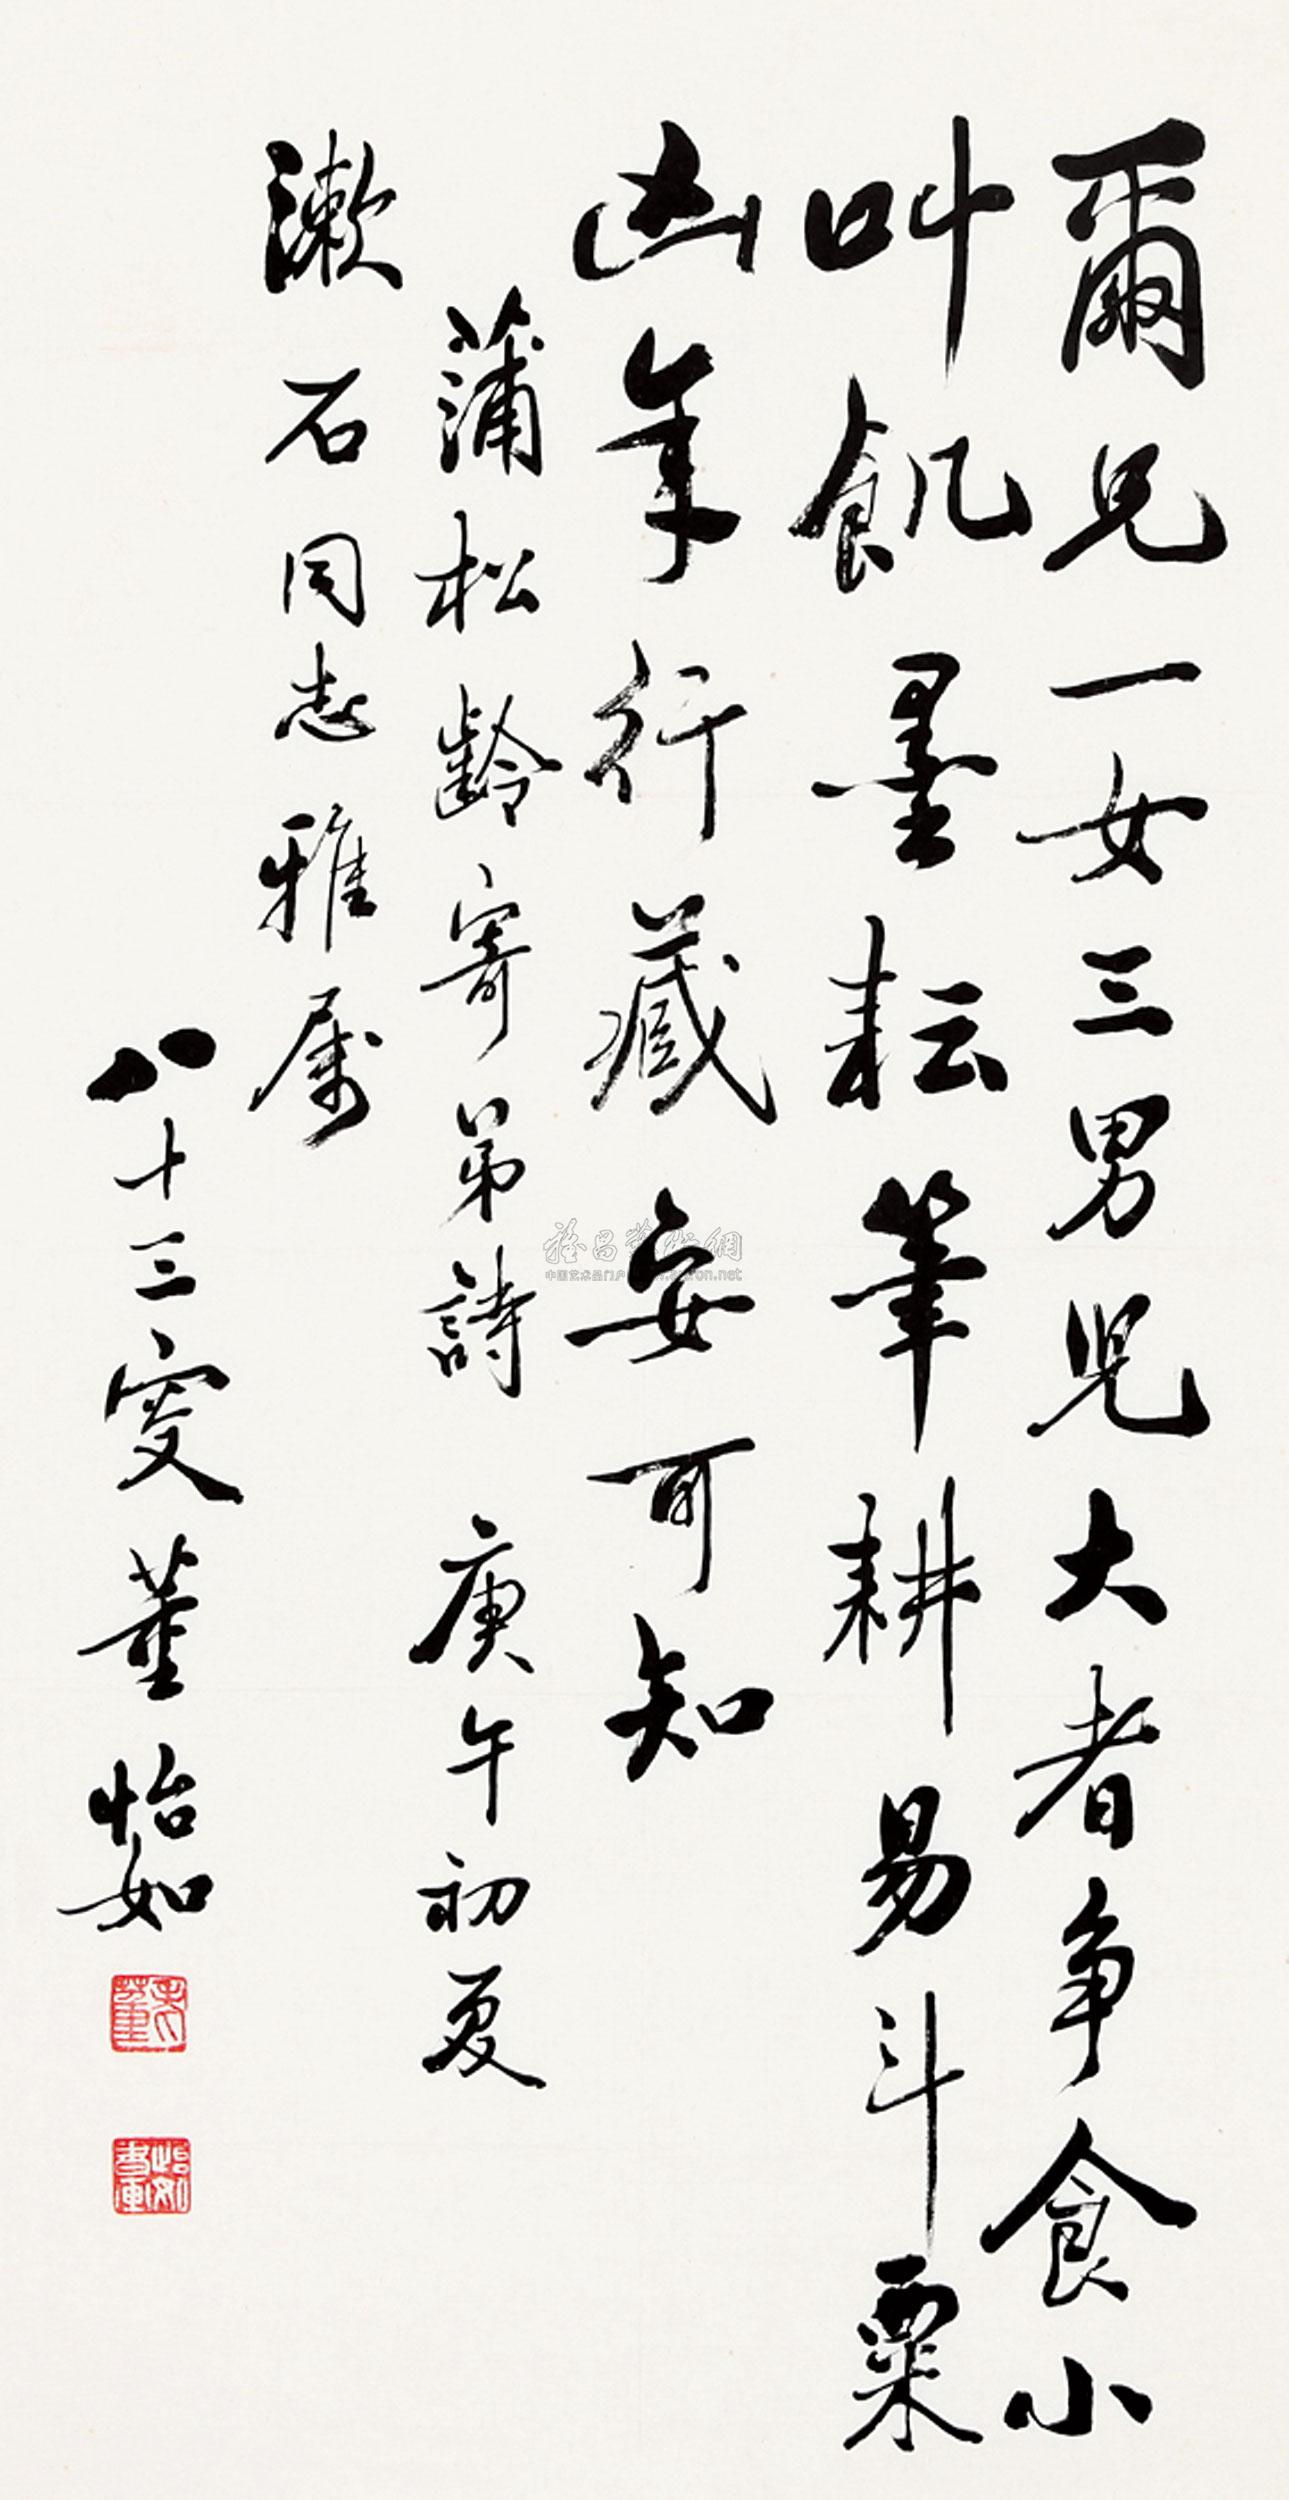 爾兄一女三男兒大者争食小
叫飢墨耘筆耕易斗粟
凶年行藏安可知
蒲松齡寄弟詩 庚午初夏
漱石同志雅属
八十三叟董怡如
雅昌藝術網
中国艺术品门户